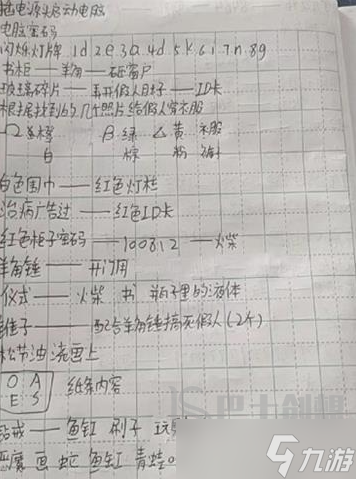 插电源启动电脑
电脑密码
闪烁灯牌 1d 2e 3a 4d 5k 6i 7n 8g
书柜——羊角——砸窗户
玻璃碎片——割开假人肚子——ID卡
根据找到的几张照片给假人穿衣服
绿 黄 衣服
白 棕 粉 裤
白色围巾——红色灯柱
治病广告过——红色ID卡
红色柜子密码——100812——火柴
羊角锤——开门用
仪式——火柴 书 瓶子里的液体
锥子——配合羊角锤搞死假人(2个)
松节油浇画上
O A
E S
纸条内容
鱼缸 刷子
恶魔 画 蛇 鱼缸 青蛙
巴士创想
九游